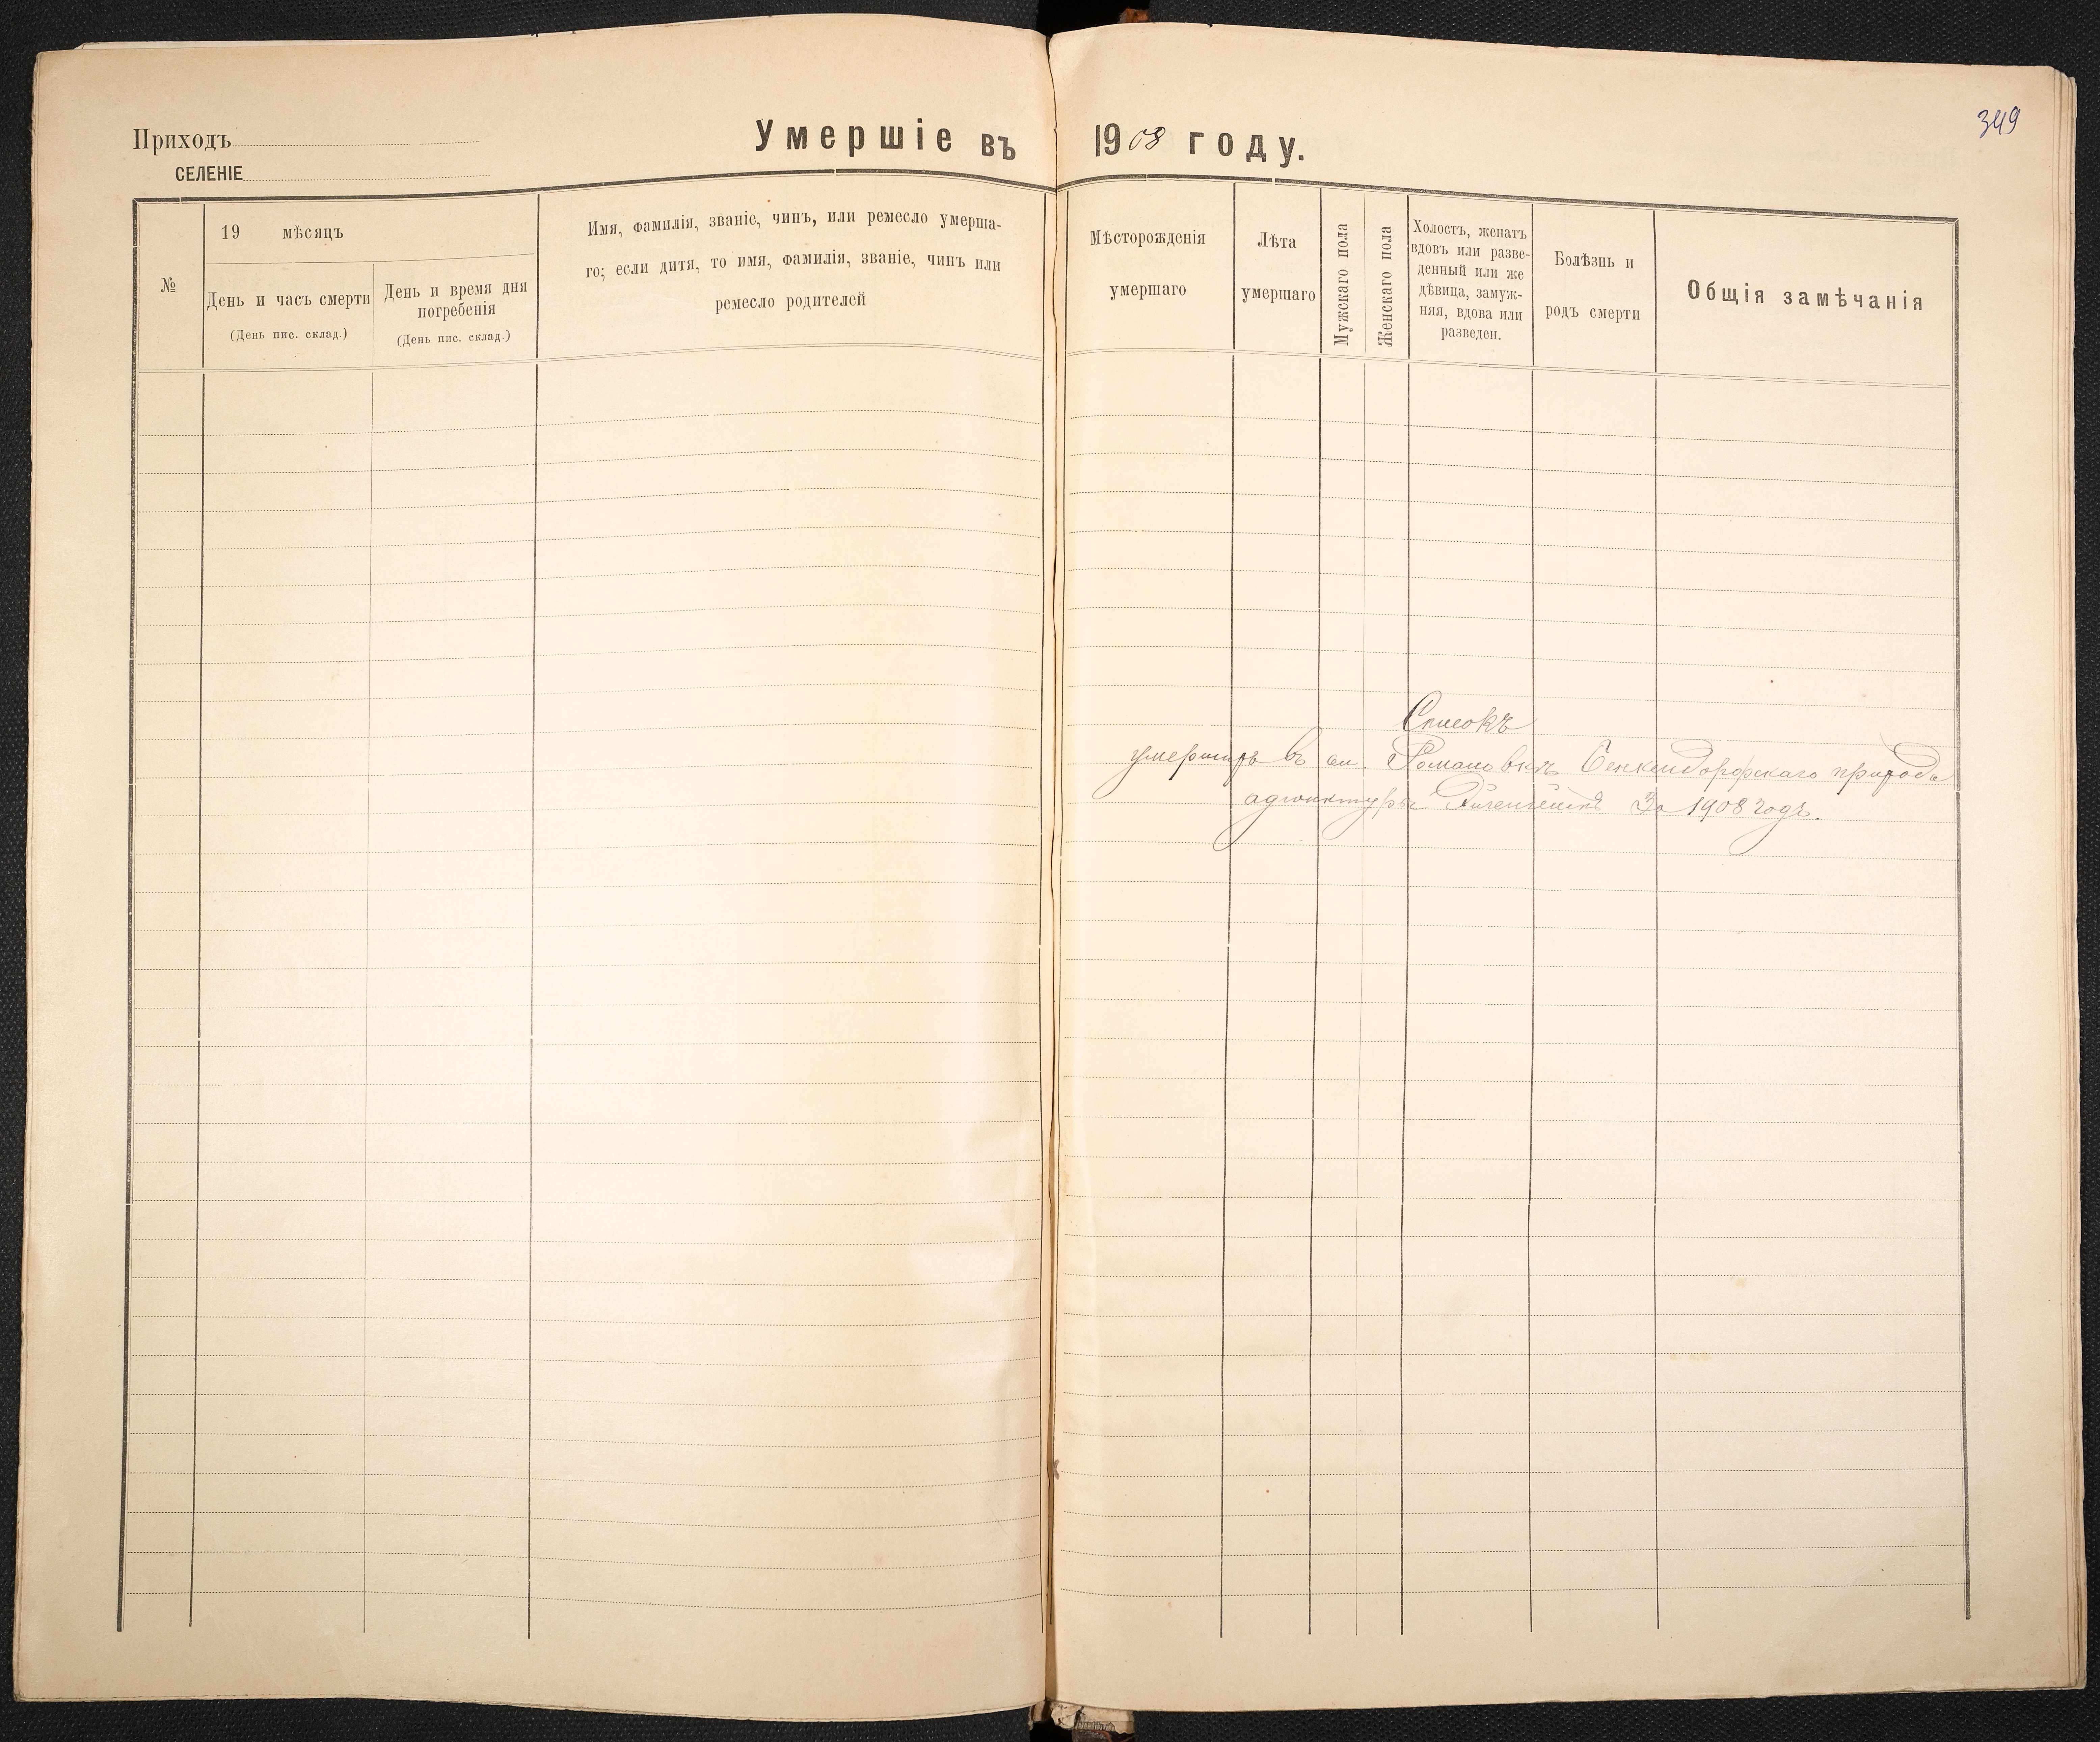 349
Приходъ
СЕЛЕНІЕ
Умершіе въ 1908 году.
№
19 мѣсяцъ
День и часъ смерти
(День пис. склад.)
День и время дня
погребенія
(День пис. склад.)
Имя, фамилія, званіе, чинъ, или ремесло умерша-
го; если дитя, то имя, фамилія, званіе, чинъ или
ремесло родителей
Мѣсторожденія
умершаго
Лѣта
умершаго
Мужскаго пола
Женскаго пола
Холостъ, женатъ
вдовъ или разве-
денный или же
дѣвица, замуж-
няя, вдова или
разведен.
Болѣзнь и
родъ смерти
Общія замѣчанія
Списокъ
умершихъ въ сел. Романовкѣ Бенкендорфскаго прихода
адъюнктуры за 1908 годъ.